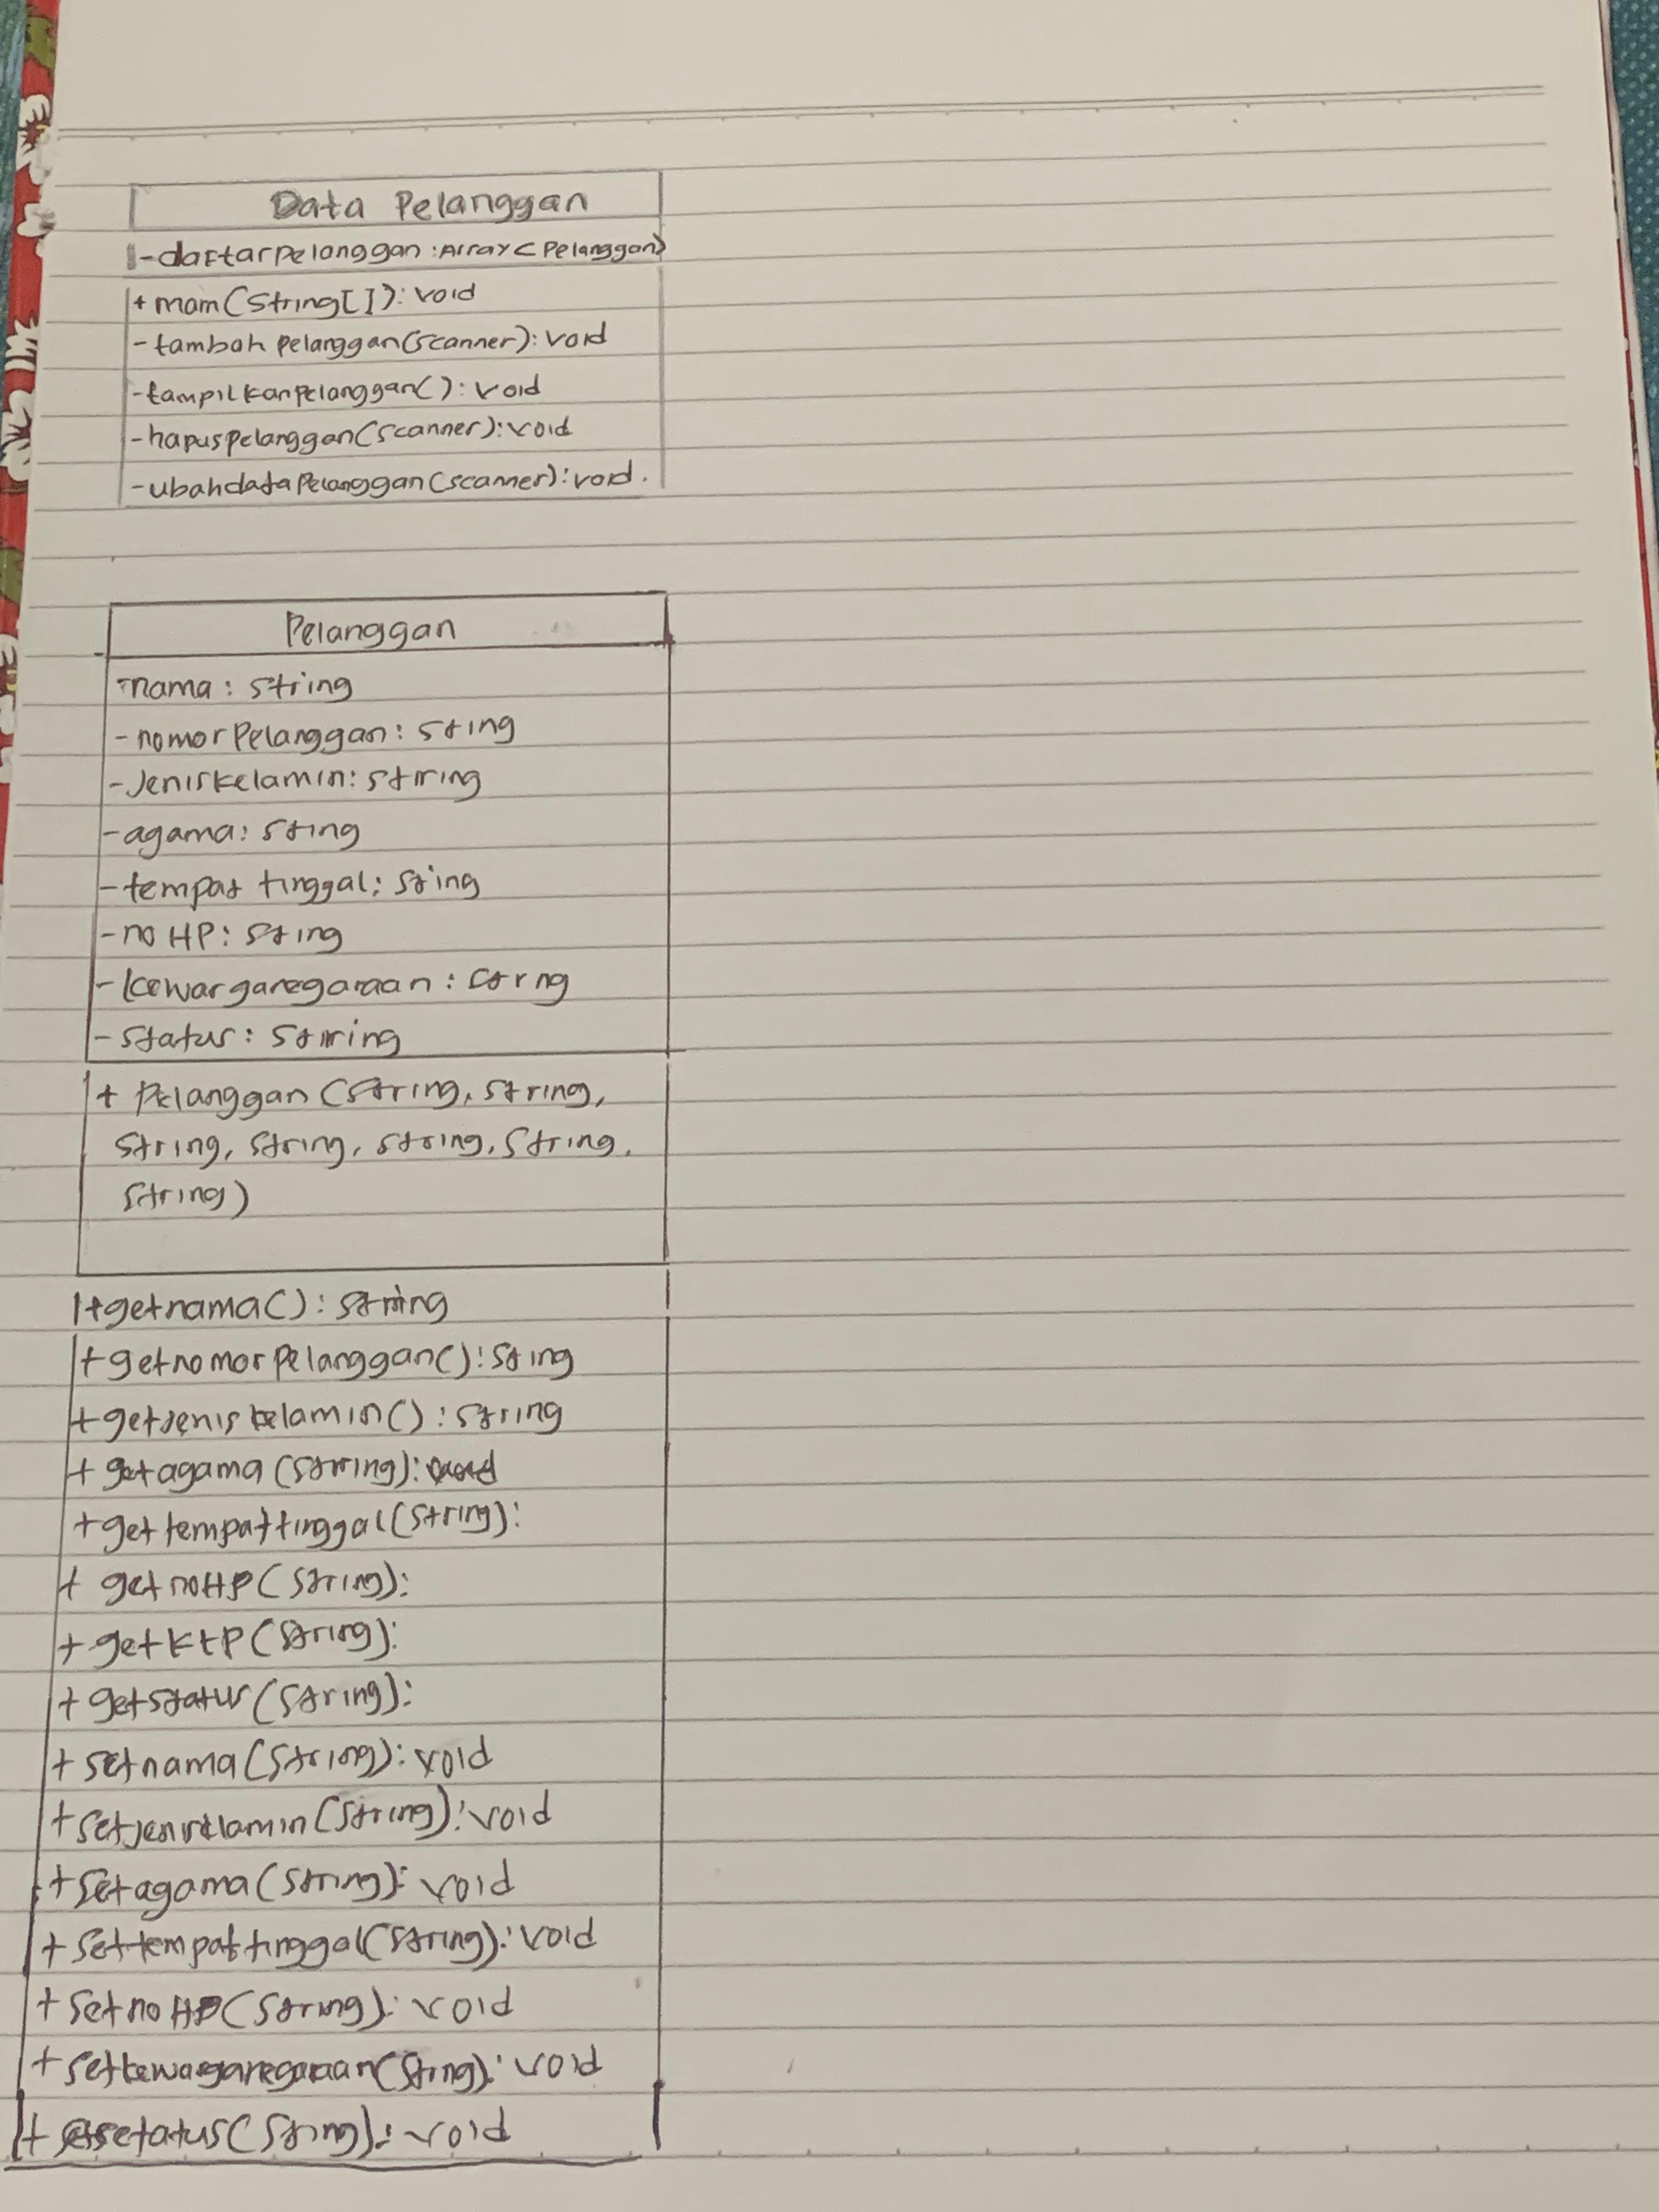 Data Pelanggan
-daftarpelanggan : Array < Pelanggan>
+ main (String[]): void
- tambah pelanggan(scanner): void
-tampilkanpelanggan(): void
-hapuspelanggan(scanner):void
-ubahdatapelanggan(scanner):void.
Pelanggan
-nama : string
- nomorPelanggan: string
-Jeniskelamin: string
-agama: string
-tempat tinggal: string
-no HP: string
- kewarganegaraan : string
- status : string
+ Pelanggan (String, string,
string, string, string, string,
string)
+getnama() : string
+getnomorpelanggan():string
+getjeniskelamin() : string
+ getagama (string):
+gettempattinggal(string):
+ getnoHP (string):
+getktp (string):
+ getstatus (string):
+ setnama (string): void
+ (string): void
+setagama (string): void
+ settempattinggal(string): void
+ setnoHP (string): void
+ setkewarganegaraan(string): void
+ (string): void